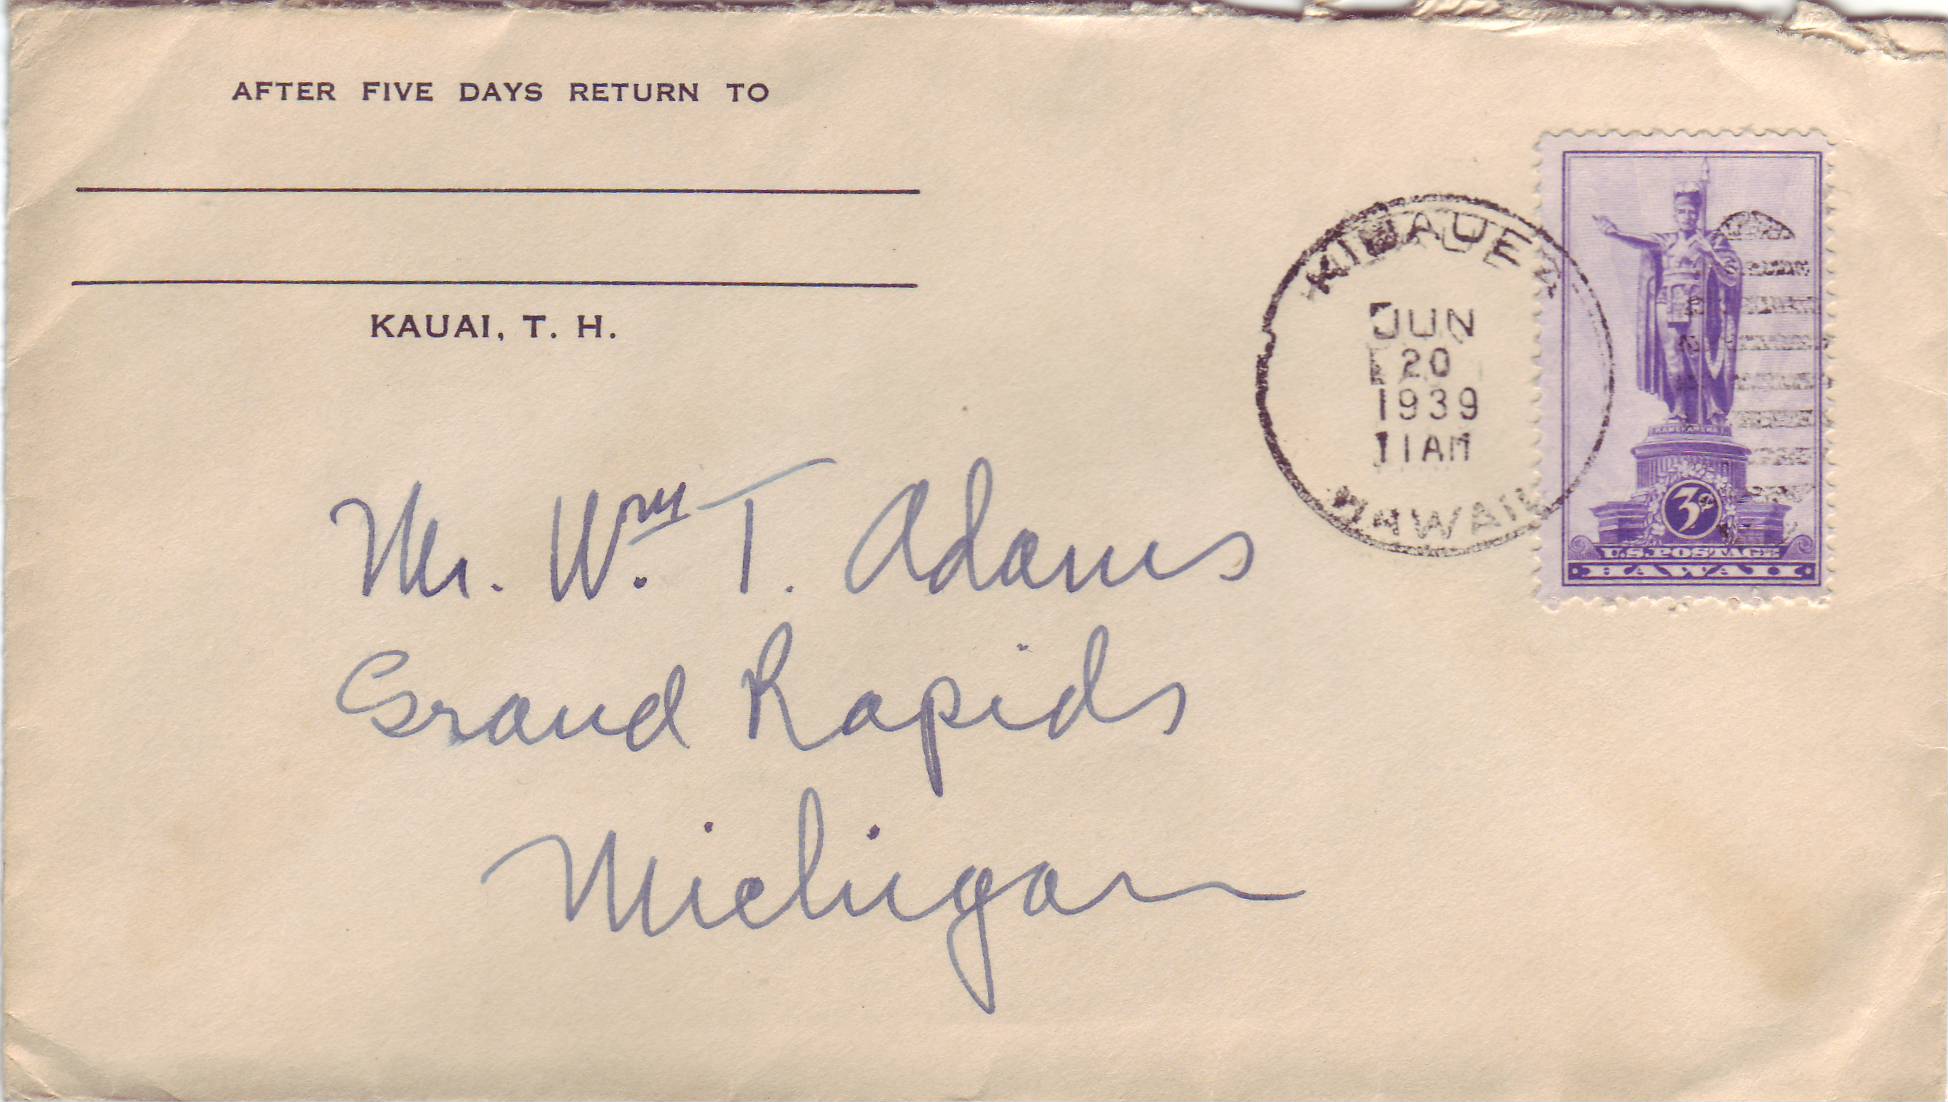 AFTER FIVE DAYS RETURN TO
KAUAI, T. H.
KILAUEA
JUN
20
1939
11AM
HAWAII
KAMEHAMEHA
3¢
U.S.POSTAGE
HAWAII
Mr. Wm. T. Adams
Grand Rapids
Michigan